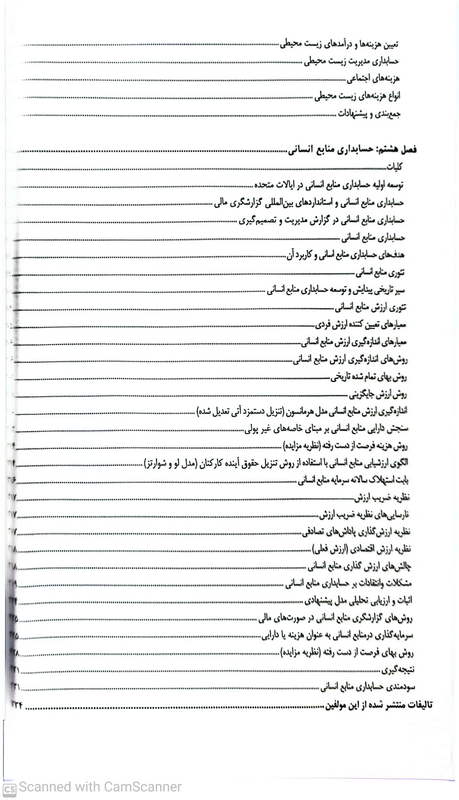 تعیین هزینه‌ها و درآمدهای زیست محیطی
حسابداری مدیریت زیست محیطی
هزینه‌های اجتماعی
انواع هزینه‌های زیست محیطی
جمع‌بندی و پیشنهادات
فصل هشتم: حسابداری منابع انسانی
کلیات
توسعه اولیه حسابداری منابع انسانی در ایالات متحده
حسابداری منابع انسانی و استانداردهای بین‌المللی گزارشگری مالی
حسابداری منابع انسانی در گزارش مدیریت و تصمیم‌گیری
حسابداری منابع انسانی
هدف‌های حسابداری منابع اسانی و کاربرد آن
تئوری منابع انسانی
سیر تاریخی پیدایش و توسعه حسابداری منابع انسانی
تئوری ارزش منابع انسانی
معیارهای تعیین کننده ارزش فردی
معیارهای اندازه‌گیری ارزش منابع انسانی
روش‌های اندازه‌گیری ارزش منابع انسانی
روش بهای تمام شده تاریخی
روش ارزش جایگزینی
اندازه‌گیری ارزش منابع انسانی مدل هرمانسون (تنزیل دستمزد آتی تعدیل شده)
سنجش دارایی منابع انسانی بر مبنای خاصه‌های غیر پولی
روش هزینه فرصت از دست رفته (نظریه مزایده)
الگوی ارزشیابی منابع انسانی با استفاده از روش تنزیل حقوق آینده کارکنان (مدل لو و شوارتز)
بابت استهلاک سالانه سرمایه منابع انسانی
نظریه ضریب ارزش
نارسایی‌های نظریه ضریب ارزش
نظریه ارزش‌گذاری پاداش‌های تصادفی
نظریه ارزش اقتصادی (ارزش فعلی)
چالش‌های ارزش گذاری منابع انسانی
مشکلات وانتقادات بر حسابداری منابع انسانی
اثبات و ارزیابی تحلیلی مدل پیشنهادی
روش‌های گزارشگری منابع انسانی در صورت‌های مالی
سرمایه‌گذاری درمنابع انسانی به عنوان هزینه یا دارایی
روش بهای فرصت از دست رفته (نظریه مزایده)
نتیجه‌گیری
سودمندی حسابداری منابع انسانی
تالیفات منتشر شده از این مولفین
CS Scanned with CamScanner